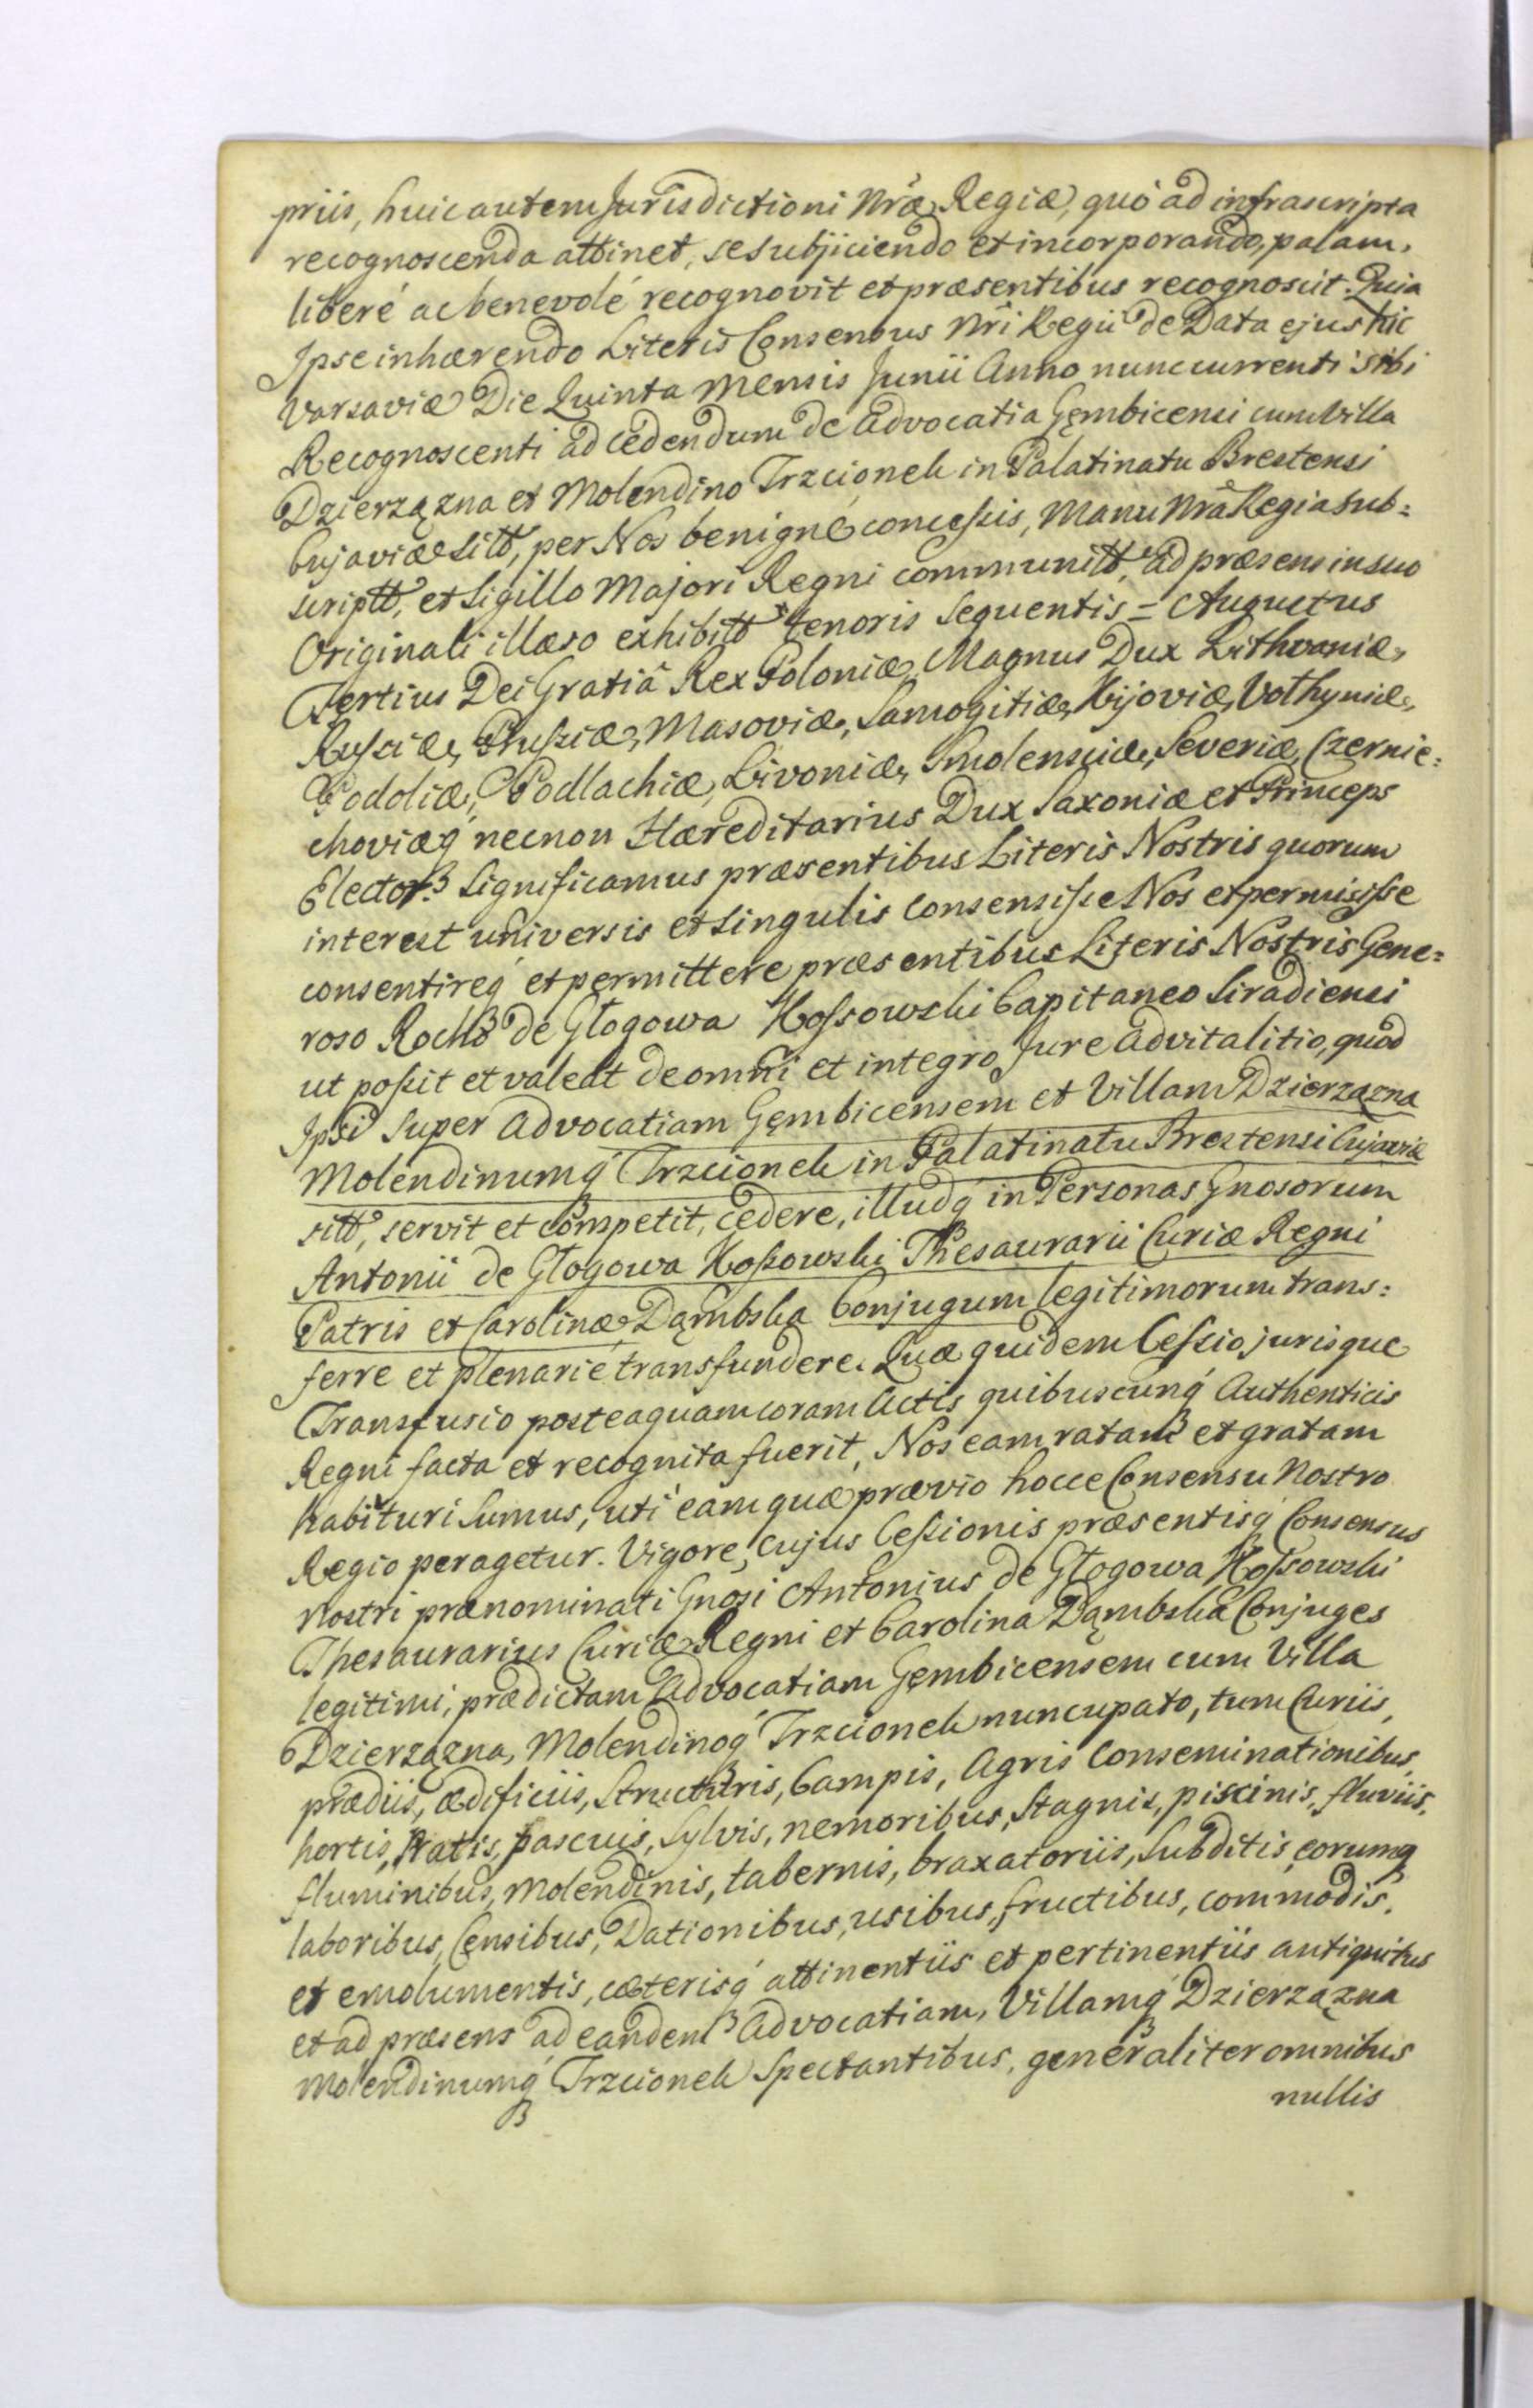 priis, huic autem Jurisdictioni Nrae Regiae, quo ad infrascripta
recognoscenda attinet, se subjiciendo et incorporando, palam,
liberé ac benevolé recognovit et praesentibus recognoscit. Quia
Ipse inhaerendo Literis Consensus Nri Regii de Data ejus hic
Varsaviae Die Quinta Mensis Junii Anno nunc currenti sibi
Recognoscenti ad cedendum de Advocatia Gęmbicensi cum Villa
Dzierzązna et Molendino Trzcionek in Palatinatu Brestensi
Cujaviae sitt, per Nos benigné concessis, Manu Nra Regia sub=
scriptt, et Sigillo Majori Regni communitt, ad praesens in suo
Originali illaeso exhibitt tenoris sequentis = Augustus
Tertius Dei Gratiâ Rex Poloniae, Magnus Dux Lithvaniae,
Russiae, Prussiae, Masoviae, Samogitiae, Kijoviae, Volhyniae,
Podoliae, Podlachiae, Livoniae, Smolensciae, Severiae, Czernie=
choviaeq necnon Haereditarius Dux Saxoniae et Princeps
Elector. Significamus praesentibus Literis Nostris quorum
interest universis et singulis consensisse Nos et permisisse
consentireq et permittere praesentibus Literis Nostris Gene=
roso Rocho de Głogowa Kossowski Capitaneo Siradiensi
ut possit et valeat de omni et integro Jure Advitalitio, quod
Ipsi super Advocatiam Gęmbicensem et Villam Dzierzązna
Molendinumq Trzcionek in Palatinatu Brestensi Cujaviae
sitt, servit et competit, cedere, illudq in Personas Gnosorum
Antonii de Głogowa Kossowski Thesaurarii Curiae Regni
Patris et Carolinae Dąmbska Conjugum legitimorum trans=
ferre et plenarié transfundere. Quae quidem Cessio jurisque
Transfusio posteaquam coram Actis quibuscunq Authenticis
Regni facta et recognita fuerit, Nos eam ratam et gratam
habituri sumus, uti eam quae praevio hocce Consensu Nostro
Regio peragetur. Vigore, cujus Cessionis praesentisq Consensus
Nostri praenominati Gnosi Antonius de Głogowa Kossowski
Thesaurarius Curiae Regni et Carolina Dąmbska Conjuges
legitimi, praedictam Advocatiam Gęmbicensem cum Villa
Dzierzązna, Molendinoq Trzcionek nuncupato, tum Curiis,
praediis, aedificiis, Structuris, Campis, Agris Conseminationibus,
hortis, Pratis, pascuis, Sylvis, nemoribus, Stagnis, piscinis, fluviis,
fluminibus, Molendinis, tabernis, braxatoriis, Subditis, eorumq
laboribus, Censibus, Dationibus, usibus, fructibus, commodis,
et emolumentis, caeterisq attinentiis et pertinentiis antiquitus
et ad praesens ad eandem Advocatiam, Villamq Dzierzązna
Molendinumq Trzcionek Spectantibus, generaliter omnibus
nullis